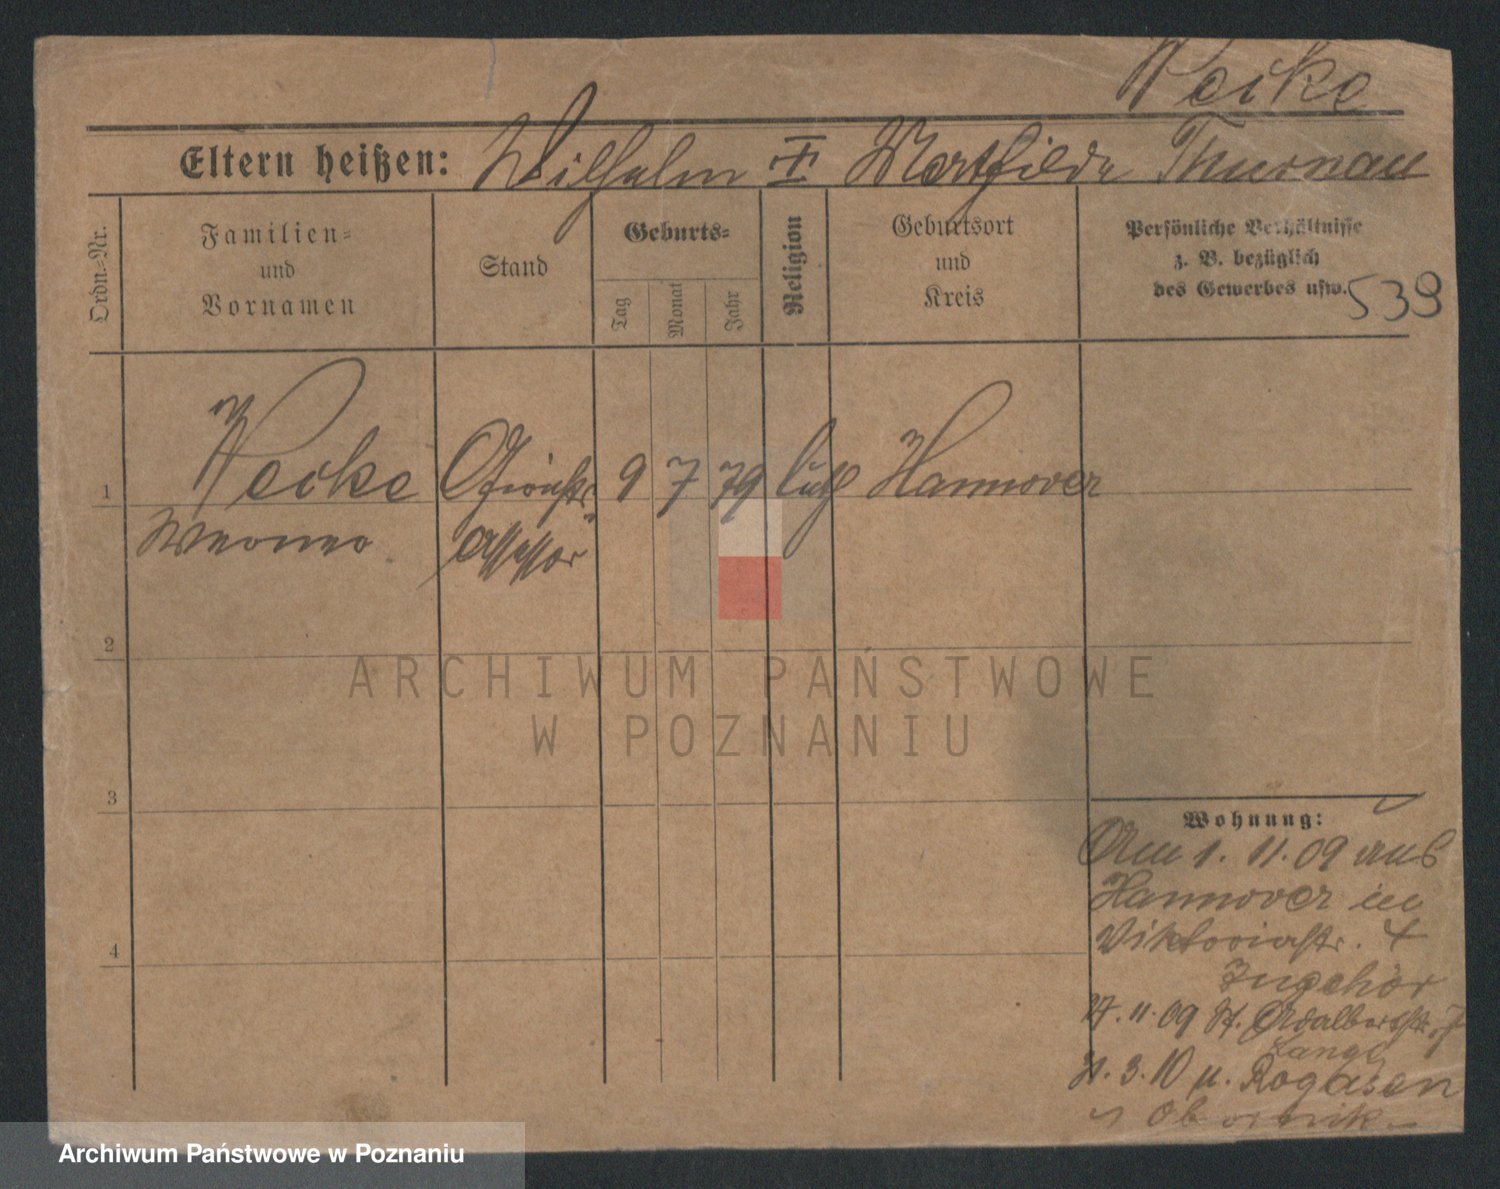 Weike
Eltern heißen: Wilhelm † Mathilde Thurnau
Ordn.=Nr.
Familien=
und
Vornamen
Stand
Geburts=
Tag
Monat
Jahr
Religion
Geburtsort
und
Kreis
Persönliche Verhältnisse
z. B. bezüglich
des Gewerbes usw.
539
1
Weike
Werner
Gerichts
assessor
9 7 79 luth Hannover
2
3
4
Wohnung:
Am 1. 11. 09 aus
Hannover in
Viktoriastr. 4
17. 11. 09 St. Adalbertstr. 7
Lange
31. 3. 10 n. Rogasen
Obornik
ARCHIWUM PAŃSTWOWE
W POZNANIU
Archiwum Państwowe w Poznaniu